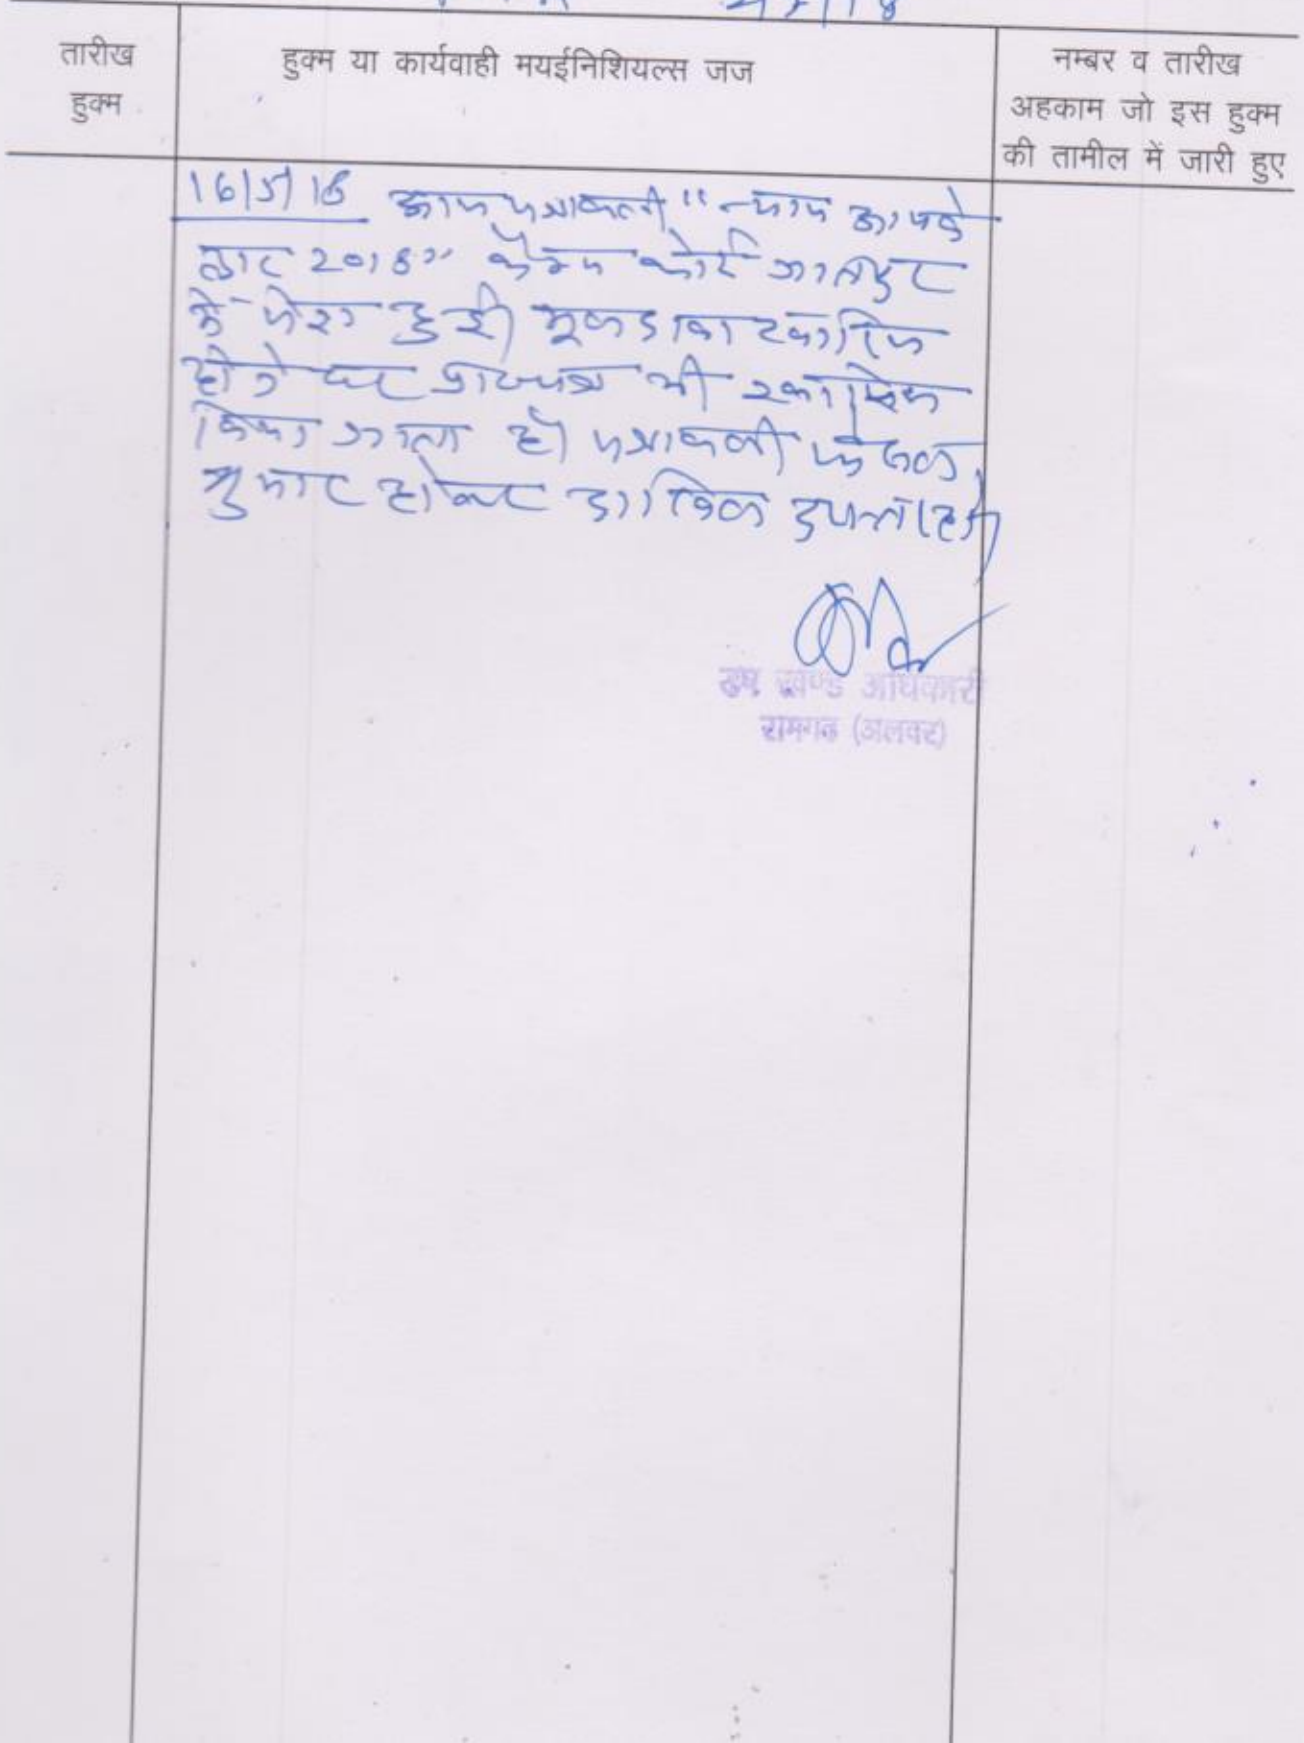 तारीख
हुक्म
हुक्म या कार्यवाही मयईनिशियल्स जज
नम्बर व तारीख
अहकाम जो इस हुक्म
की तामील में जारी हुए
16/5/18 आज पत्रावली "न्याय आपके
द्वार 2018" कैम्प कोर्ट
में पेश हुई। मूल दावा खारिज
होने पर प्रा०पत्र भी खारिज
किया जाता है। पत्रावली फैसल
शुमार होकर दाखिल दफ्तर हो।
उप खण्ड अधिकारी
रामगढ (अलवर)